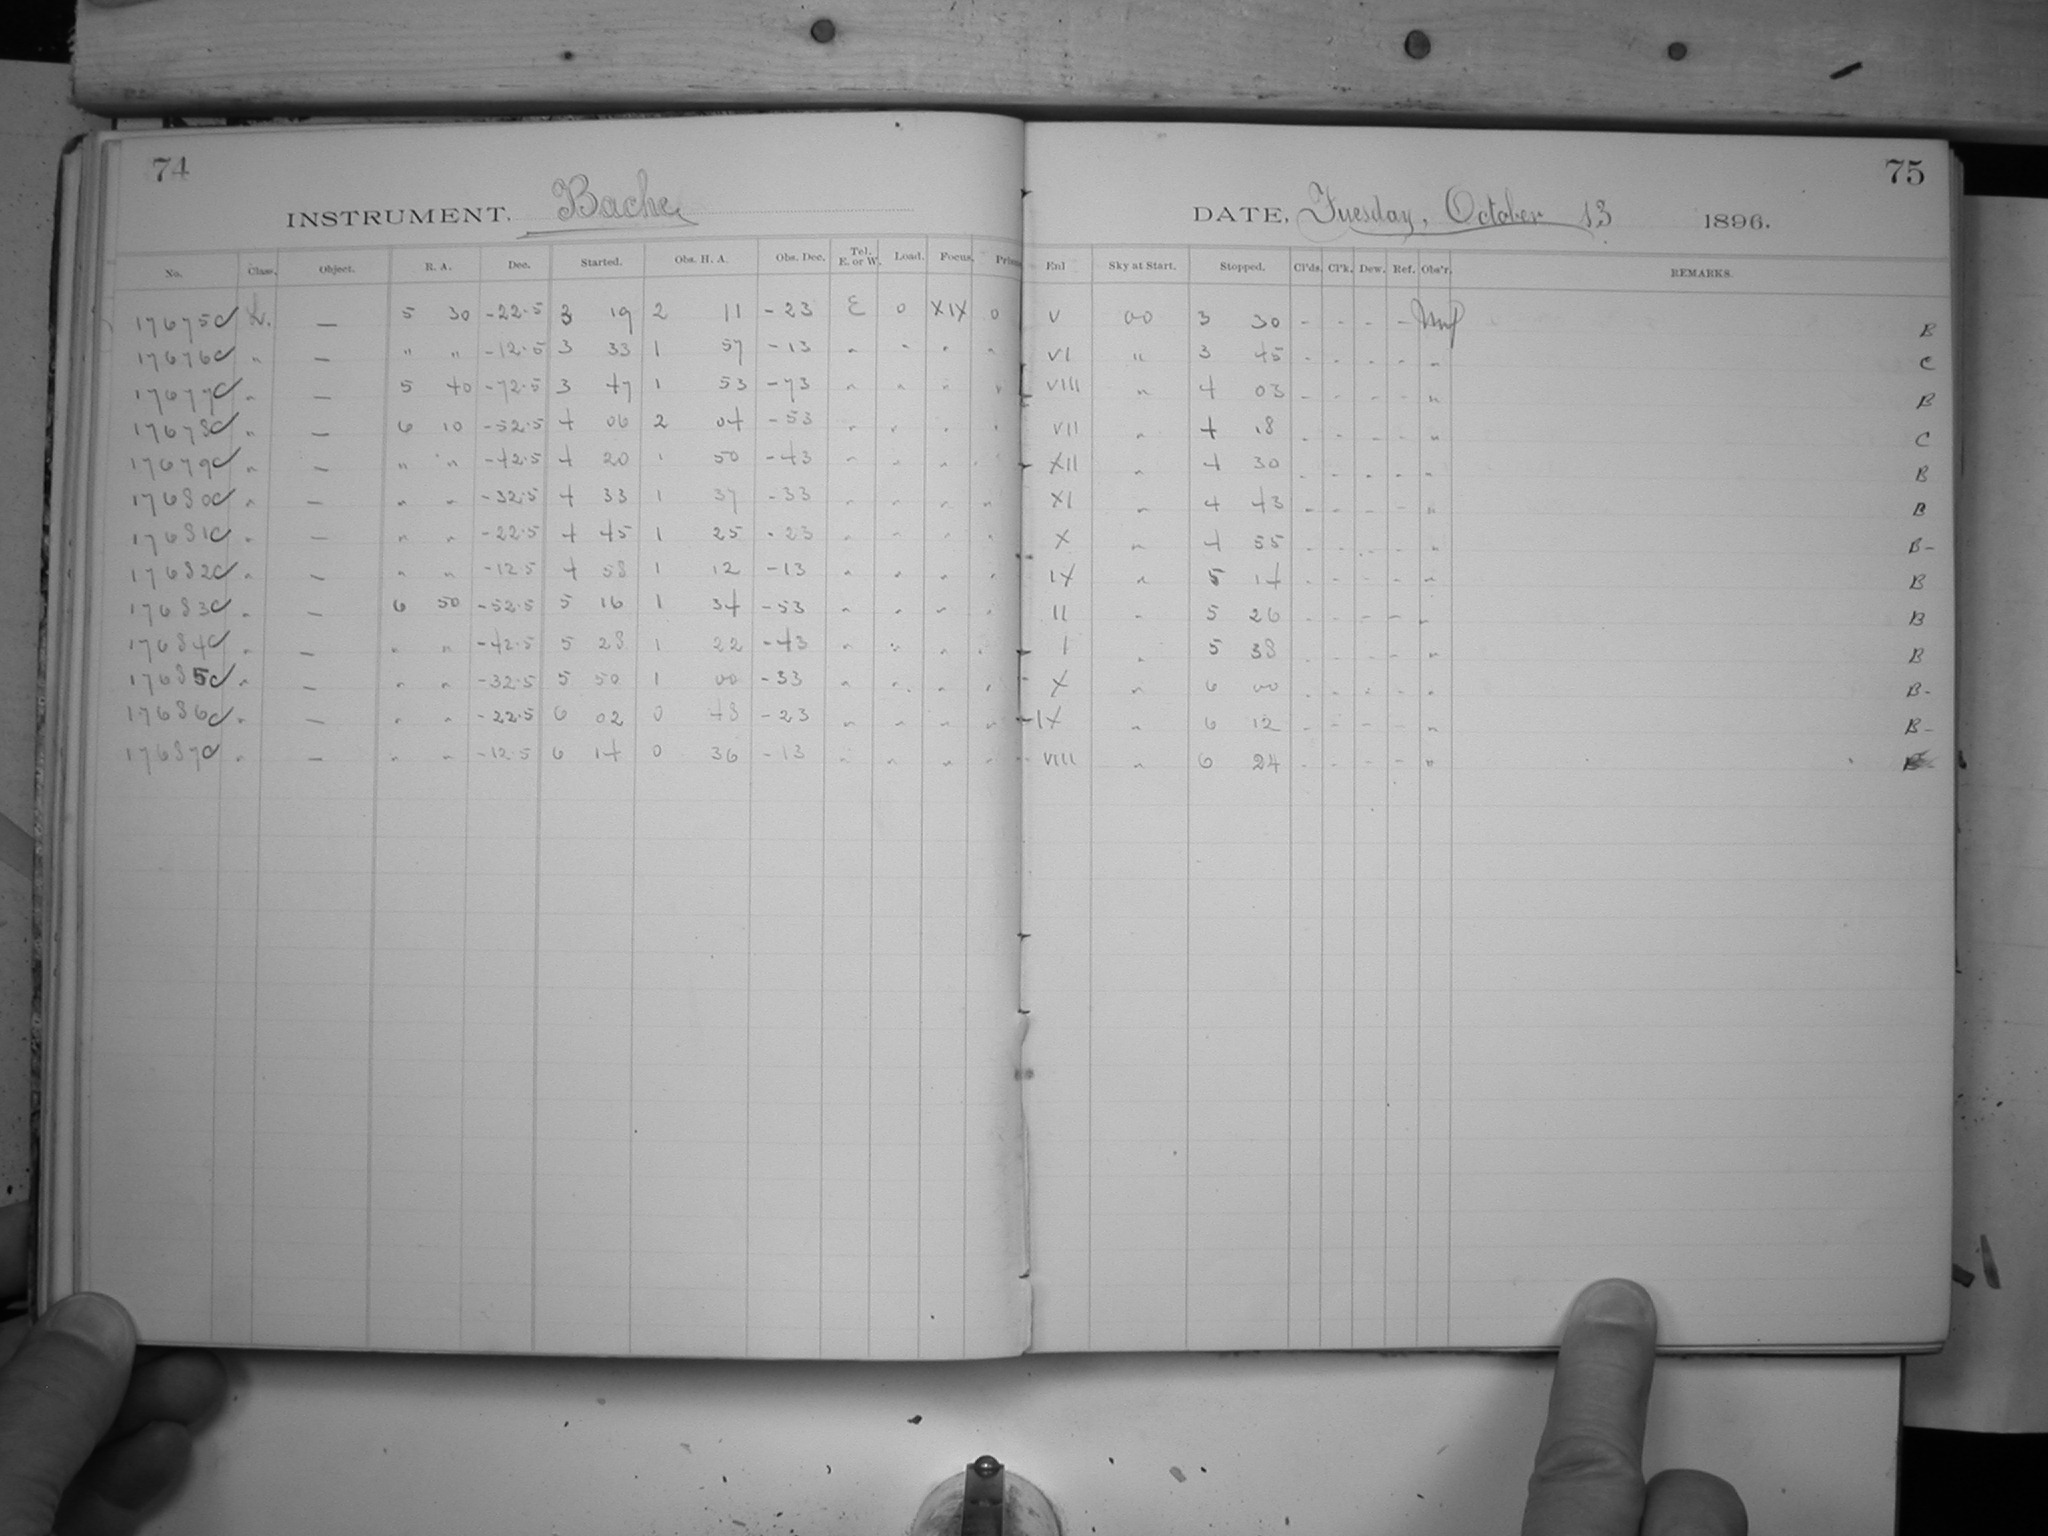 74 75
INSTRUMENT. Bache DATE, Tuesday, October 13 1896.
No. Class. Object. R. A. Dec. Started. Obs. H. A. Obs. Dec. Tel. E. or W. Load. Focus. Prism Enl Sky at Start. Stopped. Cl'ds. Cl'k. Dew. Ref. Obs'r. REMARKS.
17675 L. — 5 30 -22.5 3 19 2 11 -23 E 0 XIX 0 V 00 3 30 - - - - B
17676 " — " " -12.5 3 33 1 57 -13 " " " " VI " 3 45 - - - - " C
17677 " — 5 40 -72.5 3 47 1 53 -73 " " " " VIII " 4 03 - - - - " B
17678 " — 6 10 -52.5 4 06 2 04 -53 " " " " VII " 4 18 - - - - " C
17679 " — " " -42.5 4 20 1 50 -43 " " " " XII " 4 30 - - - - " B
17680 " — " " -32.5 4 33 1 37 -33 " " " " XI " 4 43 - - - - " B
17681 " — " " -22.5 4 45 1 25 -23 " " " " X " 4 55 - - - - " B-
17682 " — " " -12.5 4 58 1 12 -13 " " " " IX " 5 14 - - - - " B
17683 " — 6 50 -52.5 5 16 1 34 -53 " " " " II " 5 26 - - - - " B
17684 " — " " -42.5 5 28 1 22 -43 " " " " I " 5 38 - - - - " B
17685 " — " " -32.5 5 50 1 00 -33 " " " " X " 6 00 - - - - " B-
17686 " — " " -22.5 6 02 0 48 -23 " " " " IX " 6 12 - - - - " B-
17687 " — " " -12.5 6 14 0 36 -13 " " " " VIII " 6 24 - - - - "